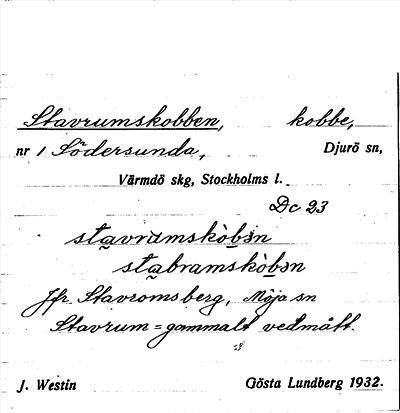 Stavrumskobben, kobbe,
nr 1 Södersunda, Djurö sn,
Värmdö skg, Stockholms l.
Dc 23
stavrumskòbən
stabramskòbən
Jfr. Stavromsberg, Möja sn
Stavrum = gammalt vedmått.
J. Westin Gösta Lundberg 1932.